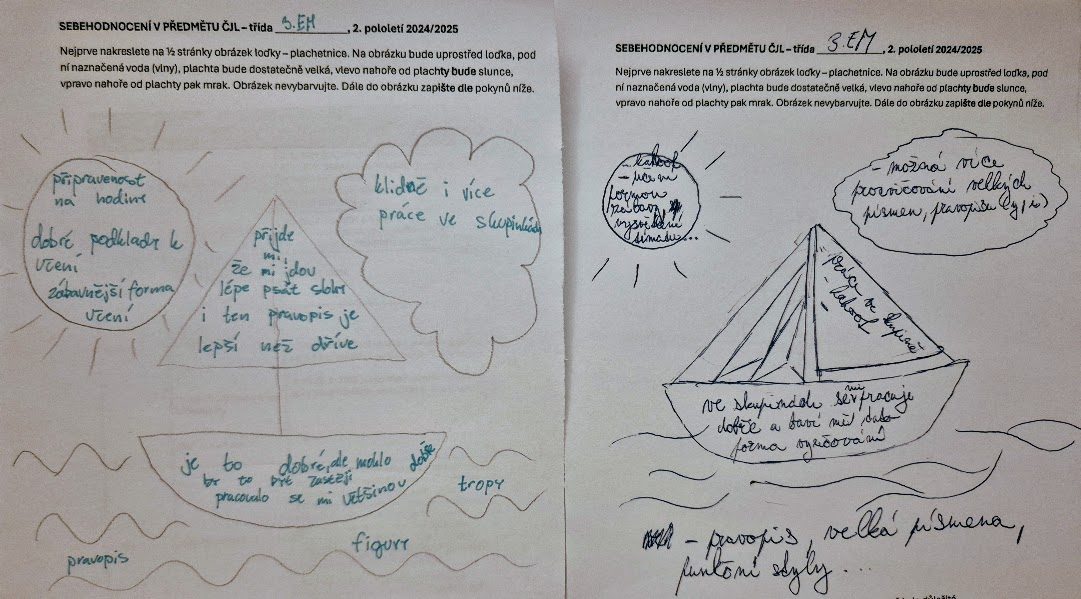 SEBEHODNOCENÍ V PŘEDMĚTU ČJL – třída 3.EM, 2. pololetí 2024/2025
Nejprve nakreslete na ½ stránky obrázek loďky – plachetnice. Na obrázku bude uprostřed loďka, pod
ní naznačená voda (vlny), plachta bude dostatečně velká, vlevo nahoře od plachty bude slunce,
vpravo nahoře od plachty pak mrak. Obrázek nevybarvujte. Dále do obrázku zapište dle pokynů níže.
připravenost
na hodinu
dobré podklady k
učení
zábavnější forma
učení
klidně i více
práce ve skupinkách
přijde
mi,
že mi jdou
lépe psát slohy
i ten pravopis je
lepší než dříve
je to dobré, ale mohlo
by to být častěji
pracovalo se mi většinou dobře
tropy
figury
pravopis
SEBEHODNOCENÍ V PŘEDMĚTU ČJL – třída 3.EM, 2. pololetí 2024/2025
Nejprve nakreslete na ½ stránky obrázek loďky – plachetnice. Na obrázku bude uprostřed loďka, pod
ní naznačená voda (vlny), plachta bude dostatečně velká, vlevo nahoře od plachty bude slunce,
vpravo nahoře od plachty pak mrak. Obrázek nevybarvujte. Dále do obrázku zapište dle pokynů níže.
- kahoot
- učení
formou
zábavy
vysvětlení
- možná více
procvičování velkých
písmen, pravopisu (y, i)
práce ve skupině
- kahoot
ve skupinách se mi pracuje
dobře a baví mě tato
forma vyučování
- pravopis, velká písmena,
funkční styly...